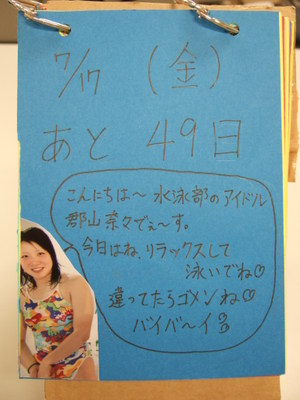 7/17 (金)
あと 49日
こんにちは～ 水泳部のアイドル
郡山奈々でぇ～す。
今日はね、リラックスして
泳いでね
違ってたらゴメンね
バイバ～イ